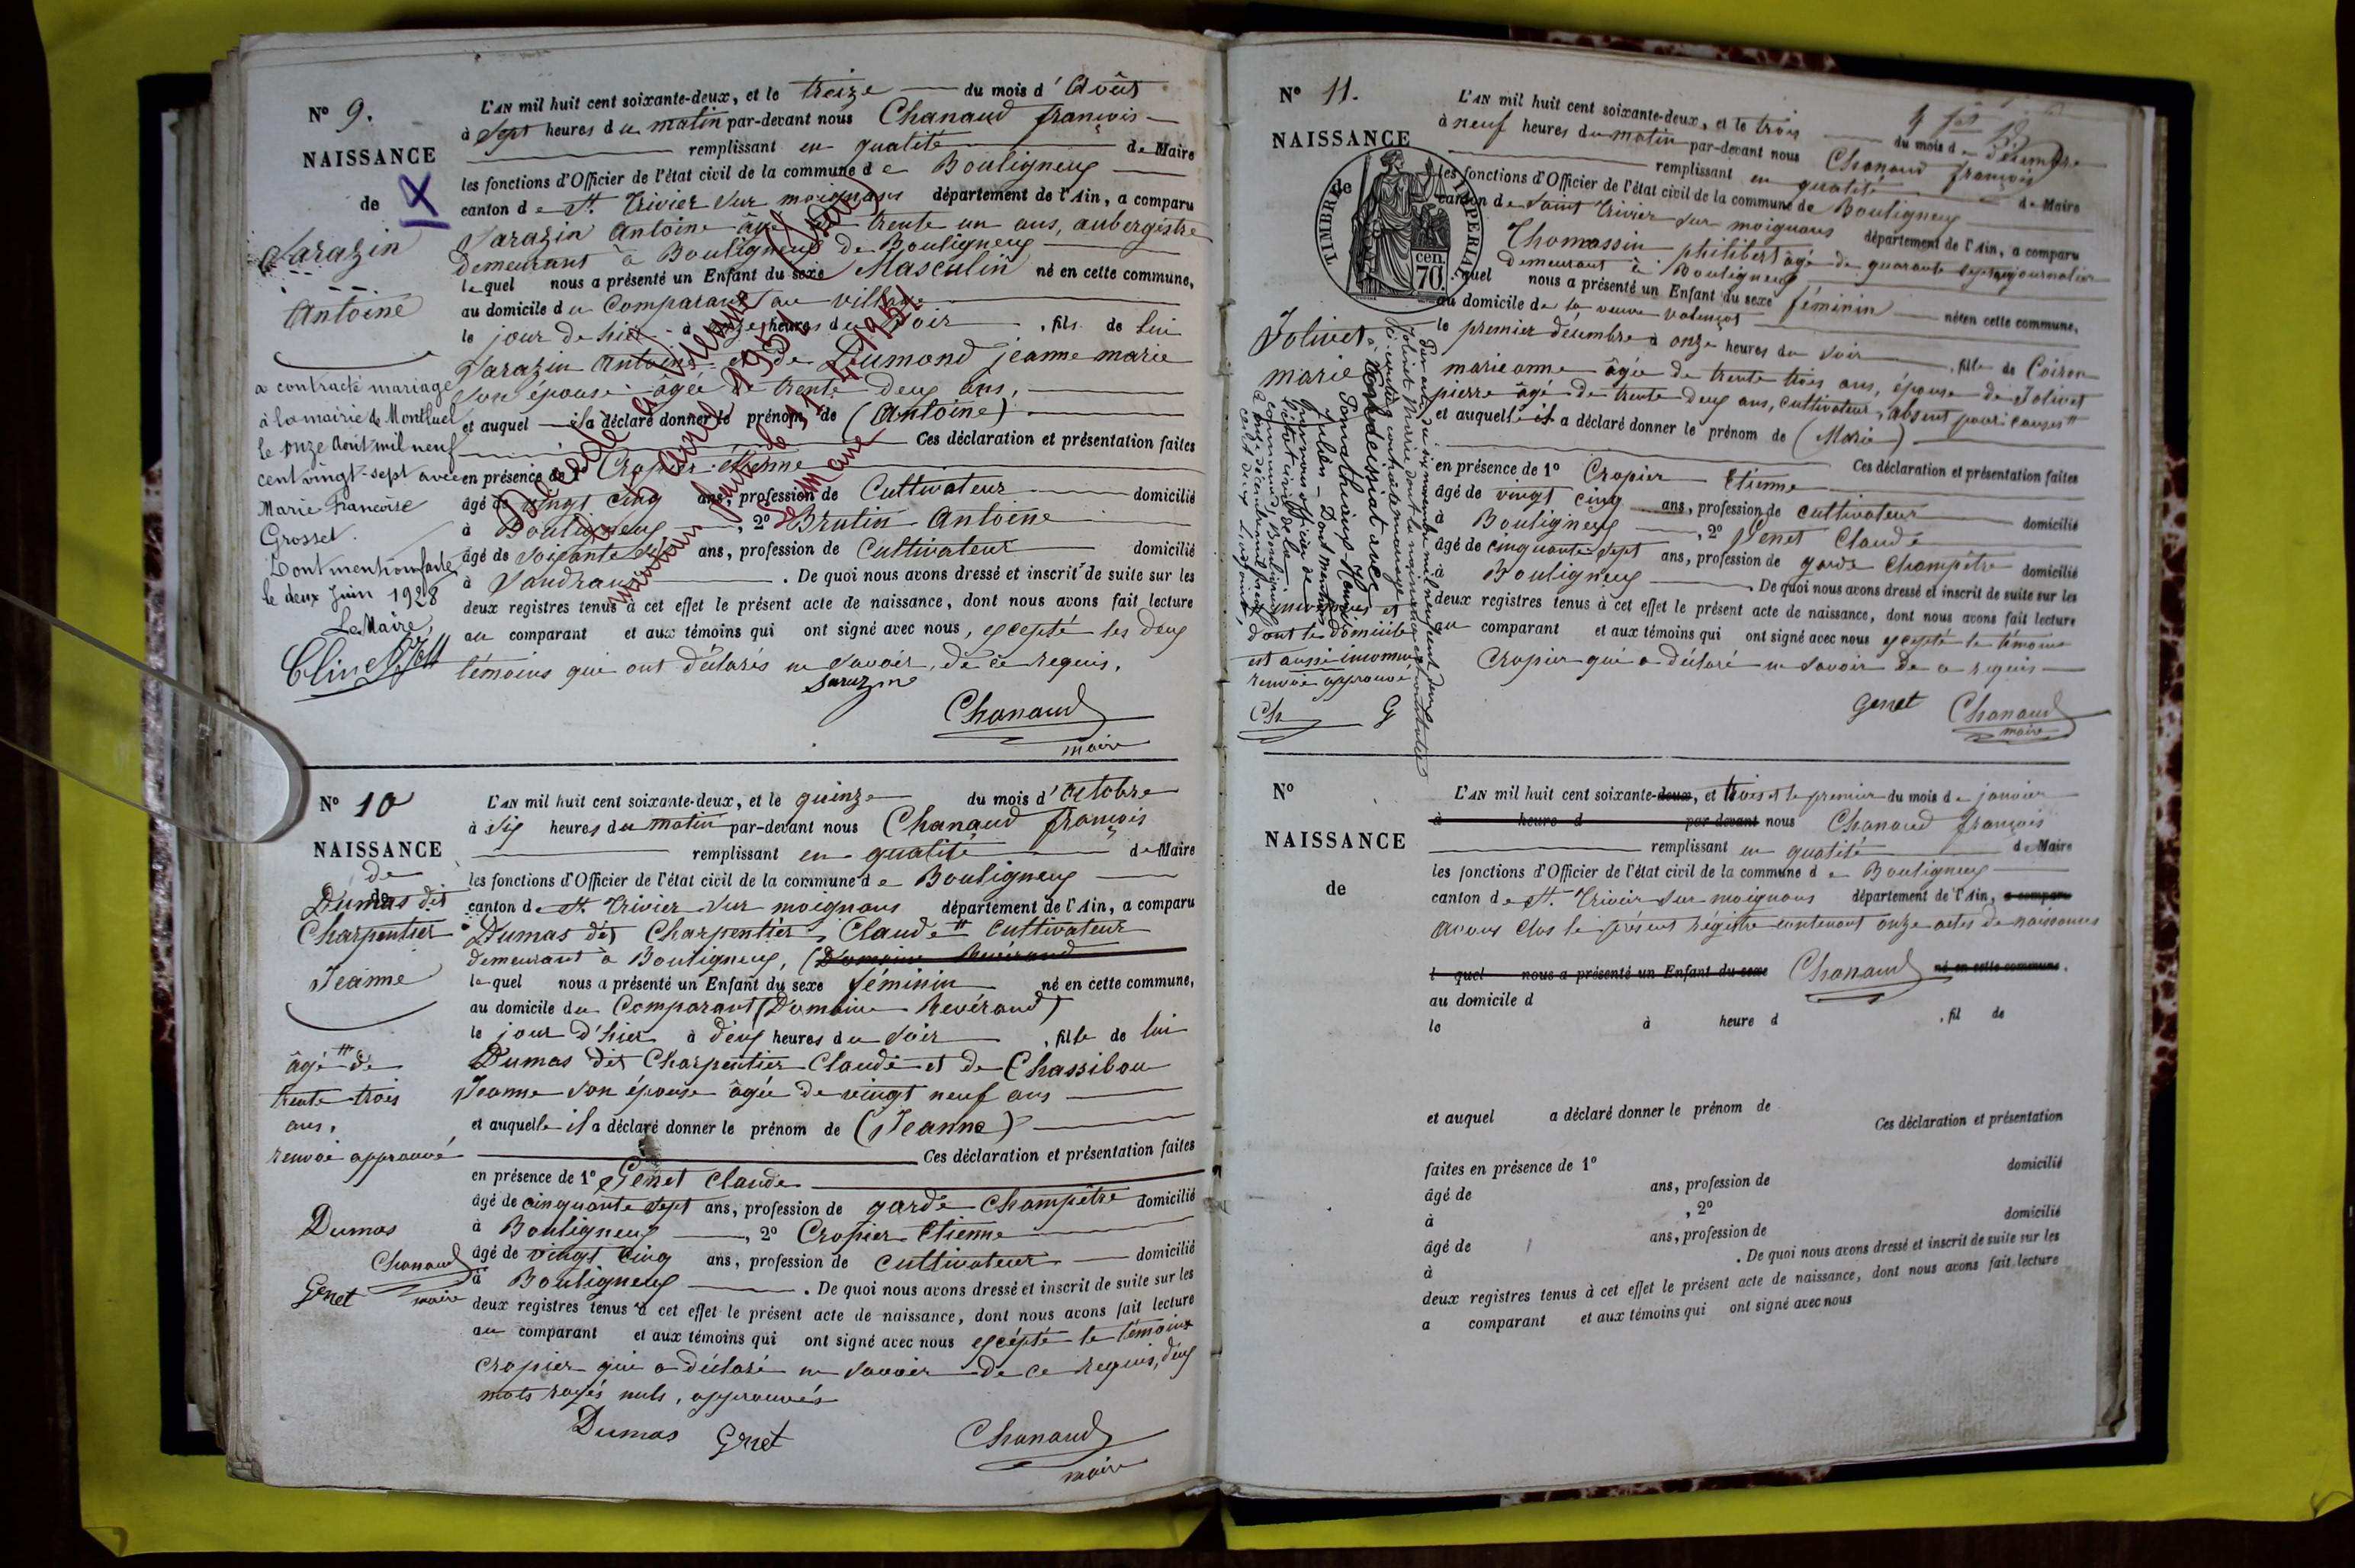 N° 9.
NAISSANCE
de X
Sarazin
Antoine
a contracté mariage
à la mairie de Montluel
le onze Août mil neuf
cent vingt-sept avec
Marie Françoise
Grosset.
Dont mention faite
le deux Juin 1928
Le Maire,
L'AN mil huit cent soixante-deux, et le treize du mois d'Août
à sept heures du matin par-devant nous Chanaud françois
remplissant en qualité de Maire
les fonctions d'Officier de l'état civil de la commune de Bouligneux
canton de St. Trivier sur moignans département de l'Ain, a comparu
Sarazin Antoine âgé de trente un ans, aubergiste
demeurant à Bouligneux de Bouligneux
lequel nous a présenté un Enfant du sexe Masculin né en cette commune,
au domicile du Comparant au village
le jour de hier à onze heures du Soir, fils de lui
Sarazin Antoine et de Dumond jeanne marie
son épouse âgée de trente deux ans,
et auquel il a déclaré donner le prénom de (Antoine)
Ces déclaration et présentation faites
en présence de 1° Cropier étienne
âgé de vingt cinq ans, profession de Cultivateur domicilié
à Bouligneux, 2° Brutin Antoine
âgé de soixante ans, profession de Cultivateur domicilié
à Sandrans. De quoi nous avons dressé et inscrit de suite sur les
deux registres tenus à cet effet le présent acte de naissance, dont nous avons fait lecture
au comparant et aux témoins qui ont signé avec nous, excepté les deux
témoins qui ont déclarés ne savoir, de ce requis.
Chanaud
maire
Décédé à Vienne (Isère)
Avril 1951
mention faite le 11-4-1951
Le Maire
N° 10
NAISSANCE
de
Dumas dit
Charpentier
Jeanne
âgé de
trente trois
ans,
renvoi approuvé
Dumas
Chanaud
Genet maire
L'AN mil huit cent soixante-deux, et le quinze du mois d'Octobre
à six heures du matin par-devant nous Chanaud françois
remplissant en qualité de Maire
les fonctions d'Officier de l'état civil de la commune de Bouligneux
canton de St. Trivier sur moignans département de l'Ain, a comparu
Dumas dit Charpentier, Claude # cultivateur
demeurant à Bouligneux, (Domaine Révérand
lequel nous a présenté un Enfant du sexe féminin né en cette commune,
au domicile du Comparant (Domaine Révérand)
le jour d'hier à deux heures du Soir, fille de lui
Dumas dit Charpentier Claude et de Chassibou
Jeanne son épouse âgée de vingt neuf ans
et auquelle il a déclaré donner le prénom de (Jeanne)
Ces déclaration et présentation faites
en présence de 1° Genet Claude
âgé de cinquante sept ans, profession de garde Champêtre domicilié
à Bouligneux, 2° Cropier Etienne
âgé de vingt cinq ans, profession de cultivateur domicilié
à Bouligneux. De quoi nous avons dressé et inscrit de suite sur les
deux registres tenus à cet effet le présent acte de naissance, dont nous avons fait lecture
au comparant et aux témoins qui ont signé avec nous excépté le témoins
Cropier qui a déclaré ne savoir de ce requis, deux
mots rayés nuls, approuvés
Dumas Genet Chanaud
maire
N° 11.
NAISSANCE
de
TIMBRE IMPÉRIAL
70 cen.
Jolivet
marie
inconnues et
dont le domicile
est aussi inconnu
renvoi approuvé
Ch G
Par acte du dix novembre mil neuf cent deux
Jolivet Marie dont la naissance est constatée
ci-contre a contracté mariage
à Condeissiat avec
Julien - Dont mention
par nous officier de
l'état civil de la
commune de Bouligneux
L'AN mil huit cent soixante-deux, et le trois du mois de Décembre
à neuf heures du matin par-devant nous Chanaud françois
remplissant en qualité de Maire
les fonctions d'Officier de l'état civil de la commune de Bouligneux
canton de Saint Trivier sur moignans département de l'Ain, a comparu
Thomassin philibert âgé de quarante sept ans journalier
demeurant à Bouligneux
lequel nous a présenté un Enfant du sexe féminin né en cette commune,
au domicile de la veuve valençot
le premier décembre à onze heures du Soir, fille de Coiron
marie anne âgée de trente trois ans, épouse de Jolivet
pierre âgé de trente deux ans, cultivateur, absent pour causes #
et auquelle il a déclaré donner le prénom de (Marie)
Ces déclaration et présentation faites
en présence de 1° Cropier Etienne
âgé de vingt cinq ans, profession de cultivateur domicilié
à Bouligneux, 2° Genet Claude
âgé de cinquante-sept ans, profession de garde Champêtre domicilié
à Bouligneux De quoi nous avons dressé et inscrit de suite sur les
deux registres tenus à cet effet le présent acte de naissance, dont nous avons fait lecture
au comparant et aux témoins qui ont signé avec nous excepté le témoins
Cropier qui a déclaré ne savoir de ce requis
Genet Chanaud
maire
N°
NAISSANCE
de
L'AN mil huit cent soixante-deux, et trois et le premier du mois de janvier
à heure d par-devant nous Chanaud françois
remplissant en qualité de Maire
les fonctions d'Officier de l'état civil de la commune de Bouligneux
canton de St. Trivier sur moignans département de l'Ain, a comparu
avons Clos le présent régistre contenant onze actes de naissances
l quel nous a présenté un Enfant du sexe Chanaud né en cette commune,
au domicile d
le à heure d , fil de
et auquel a déclaré donner le prénom de
Ces déclaration et présentation
faites en présence de 1°
âgé de ans, profession de domicilié
à , 2°
âgé de ans, profession de domicilié
à . De quoi nous avons dressé et inscrit de suite sur les
deux registres tenus à cet effet le présent acte de naissance, dont nous avons fait lecture
a comparant et aux témoins qui ont signé avec nous